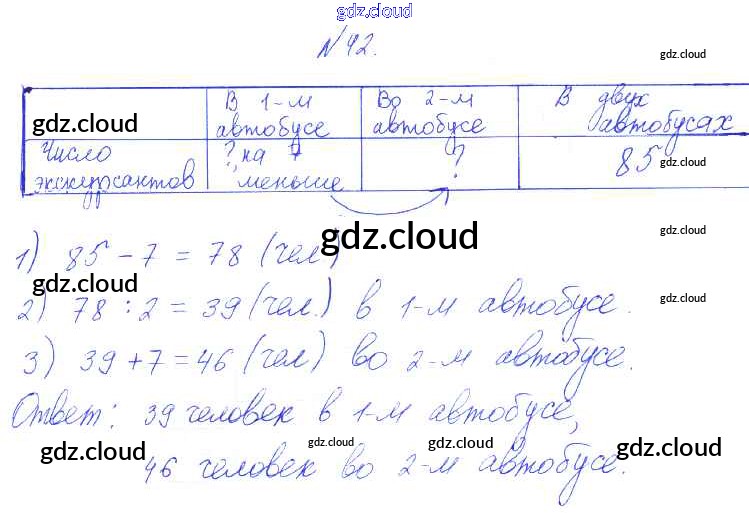 gdz.cloud
№42.
gdz.cloud
В 1-м автобусе
Во 2-м автобусе
В двух автобусах
gdz.cloud
Число экскурсантов
?, на 7 меньше
?
85
gdz.cloud
gdz.cloud
gdz.cloud
1) 85 - 7 = 78 (чел)
2) 78 : 2 = 39 (чел.) в 1-м автобусе.
gdz.cloud
3) 39 + 7 = 46 (чел) во 2-м автобусе.
Ответ: 39 человек в 1-м автобусе,
gdz.cloud
gdz.cloud
gdz.cloud
gdz.cloud
46 человек во 2-м автобусе.